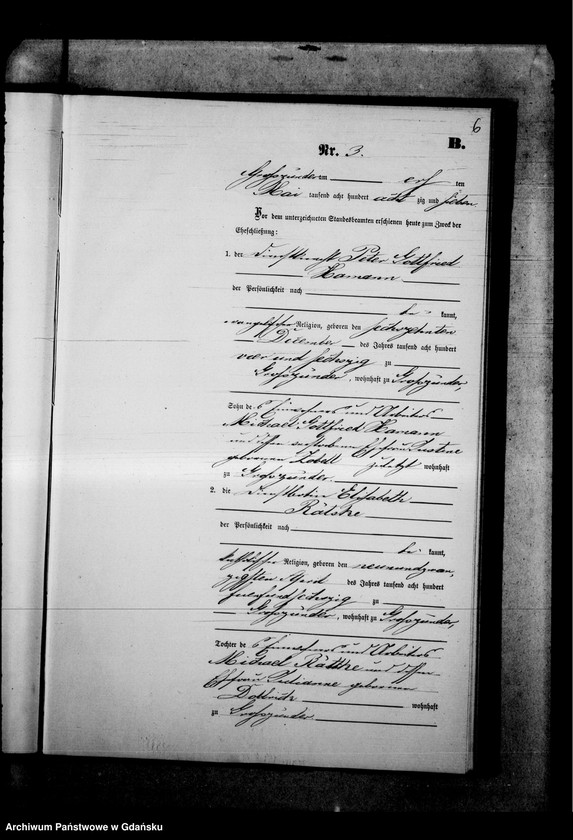 6
B.
Nr. 3.
Großzünder am elf ten
Mai tausend acht hundert acht zig und sieben
Vor dem unterzeichneten Standesbeamten erschienen heute zum Zweck der
Eheschließung:
1. der Dienstknecht Peter Gottfried
Hamann
der Persönlichkeit nach
be kannt,
evangelischer Religion, geboren den sechszehnten
December des Jahres tausend acht hundert
vier und sechszig zu
Großzünder, wohnhaft zu Großzünder,
Sohn des Einwohners und Arbeiters
Michael Gottfried Hamann
und dessen verstorbenen Ehefrau Justine
geborenen Zobell zuletzt wohnhaft
zu Großzünder
2. die Elisabeth
Rätzke
der Persönlichkeit nach
be kannt,
katholischer Religion, geboren den neunundzwan-
zigsten April des Jahres tausend acht hundert
sechszig zu
Großzünder, wohnhaft zu Großzünder,
Tochter des Einwohners und Arbeiters
Michael Rätzke und dessen
Ehefrau Julianne geborenen
wohnhaft
zu Großzünder
Archiwum Państwowe w Gdańsku